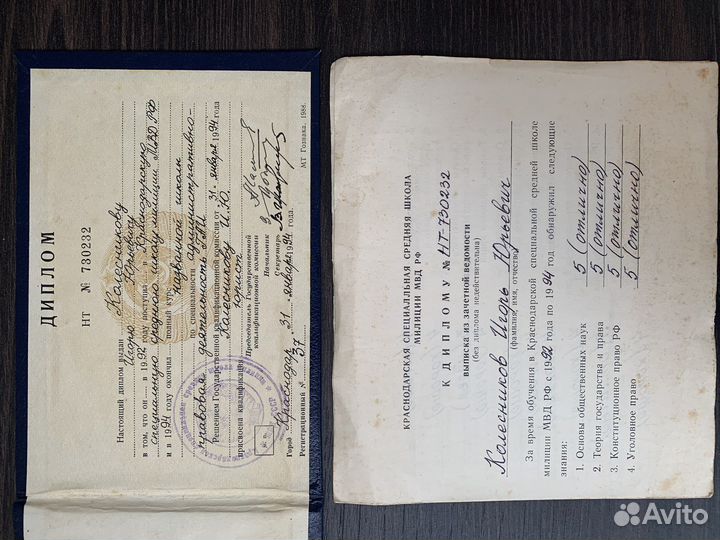 ДИПЛОМ
НТ № 730232
Настоящий диплом выдан Колесникову
Игорю Юрьевичу
в том, что он в 1992 году поступил в Краснодарскую
специальную среднюю школу милиции МВД РФ
и в 1994 году окончил полный курс
названной школы
по специальности административно-
правовая деятельность ОМ
Решением Государственной квалификационной комиссии от 31 января 1994 года
присвоена квалификация Колесникову И.Ю.
юрист
Председатель Государственной
квалификационной комиссии
Начальник
Секретарь
Город Краснодар 31 января 1994 года
Регистрационный № 37
М. П.
МТ Гознака. 1988.
КРАСНОДАРСКАЯ СПЕЦИАЛЬНАЯ СРЕДНЯЯ ШКОЛА
МИЛИЦИИ МВД РФ
К ДИПЛОМУ № НТ-730232
выписка из зачетной ведомости
(без диплома недействительна)
Колесников Игорь Юрьевич
(фамилия, имя, отчество)
За время обучения в Краснодарской специальной средней школе
милиции МВД РФ с 1992 года по 1994 год обнаружил следующие
знания:
1. Основы общественных наук 5 (отлично)
2. Теория государства и права 5 (отлично)
3. Конституционное право РФ 5 (отлично)
4. Уголовное право 5 (отлично)
Avito